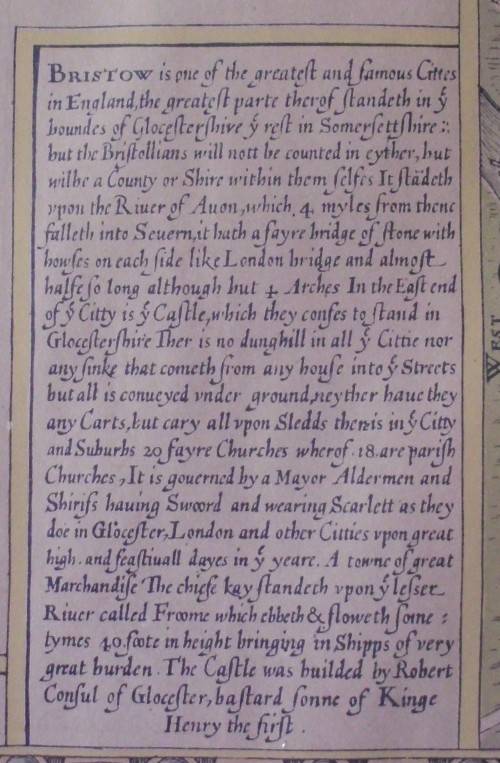 BRISTOW is one of the greatest and famous Citties
in England, the greatest parte therof standeth in yͤ
boundes of Glocestershire yͤ rest in Somersettshire :.
but the Bristollians will nott be counted in eyther, but
wilbe a County or Shire within them selfes It stādeth
vpon the Riuer of Auon, which 4 myles from thenc
falleth into Seuern, it hath a fayre bridge of stone with
howses on each side like London bridge and almost
halfe so long although but 4 Arches In the East end
of yͤ Citty is yͤ Castle, which they confes to stand in
Glocestershire Ther is no dunghill in all yͤ Cittie nor
any sinke that cometh from any house into yͤ Streets
but all is conueyed vnder ground, neyther haue they
any Carts, but cary all vpon Sledds ther is in yͤ Citty
and Suburbs 20 fayre Churches wherof .18. are parish
Churches, It is gouerned by a Mayor Aldermen and
Shirifs hauing Sword and wearing Scarlett as they
doe in Glocester, London and other Citties vpon great
high. and feastiuall dayes in yͤ yeare. A towne of great
Marchandise The chiefe kay standeth vpon yͤ lesser
Riuer called Froome which ebbeth & floweth some :
tymes 40 foote in height bringing in Shipps of very
great burden. The Castle was builded by Robert
Consul of Glocester, bastard sonne of Kinge
Henry the first .
WEST